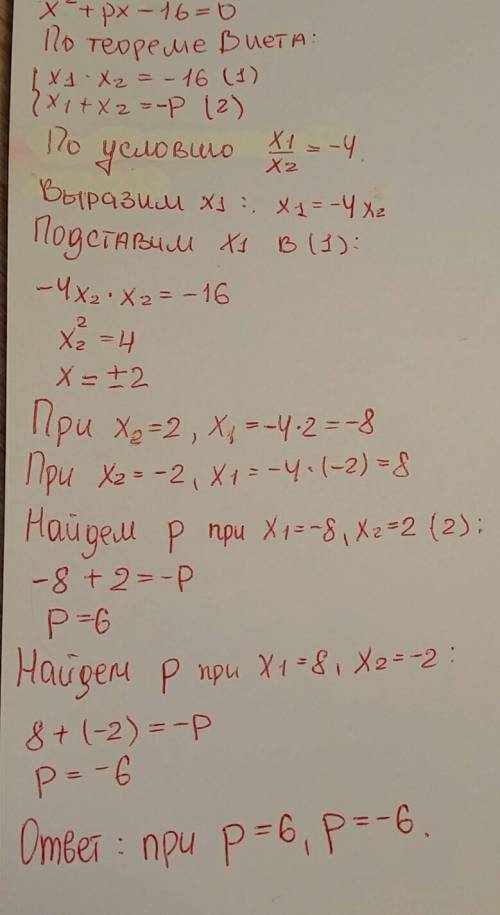 x² + px - 16 = 0
По теореме Виета:
{ x1 · x2 = -16 (1)
{ x1 + x2 = -p (2)
По условию x1/x2 = -4.
Выразим x1 :. x1 = -4x2
Подставим x1 в (1):
-4x2 · x2 = -16
x2² = 4
x = ±2
При x2=2, x1 = -4·2 = -8
При x2 = -2, x1 = -4·(-2) = 8
Найдем p при x1=-8, x2=2 (2):
-8 + 2 = -p
p = 6
Найдем p при x1=8, x2=-2:
8 + (-2) = -p
p = -6
Ответ: при p=6, p=-6.